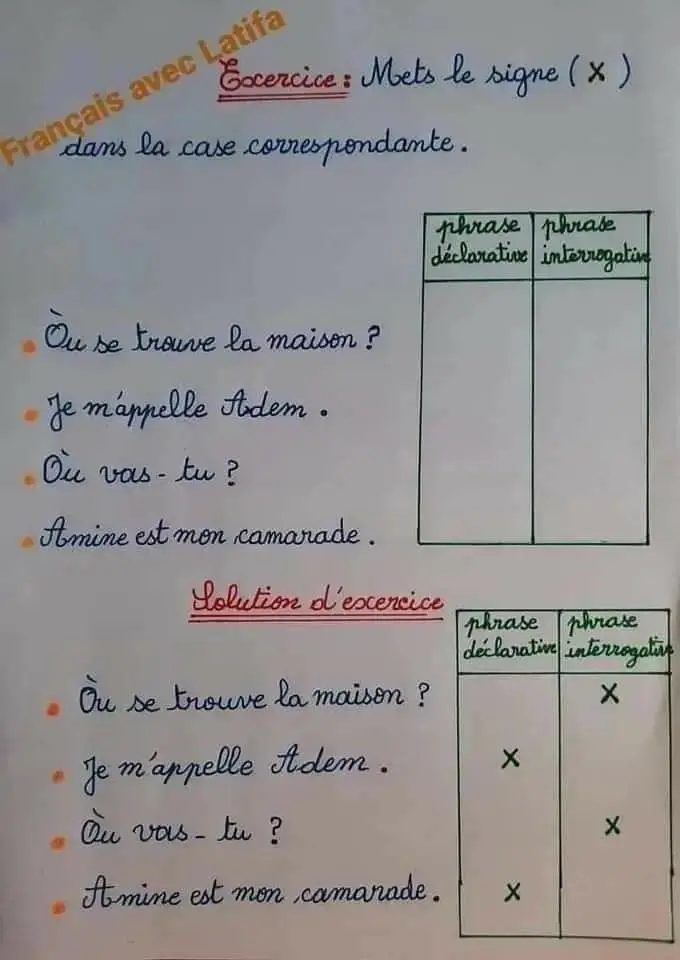 Français avec Latifa
Excercice : Mets le signe ( x )
dans la case correspondante .
phrase déclarative
phrase interrogative
• Où se trouve la maison ?
• Je m'appelle Adem .
• Où vas - tu ?
• Amine est mon camarade .
Solution d'excercice
phrase déclarative
phrase interrogative
• Où se trouve la maison ? x
• Je m'appelle Adem . x
• Où vas - tu ? x
• Amine est mon camarade . x